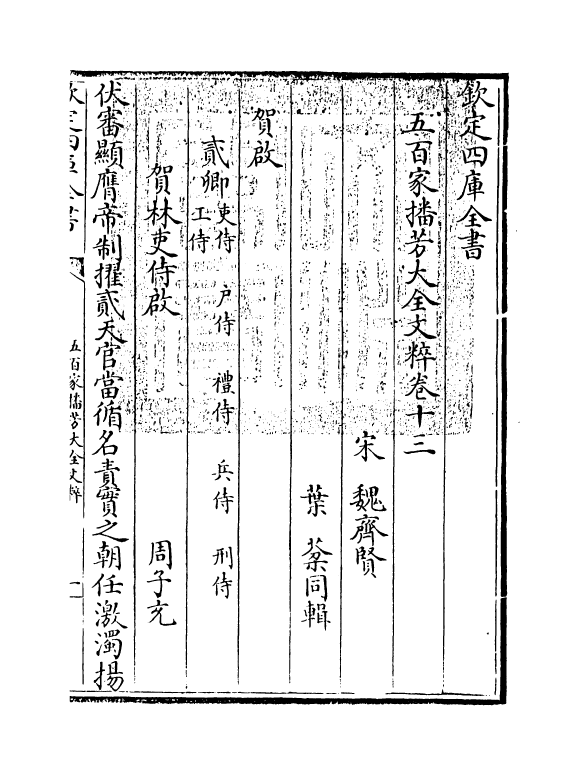 欽定四庫全書
五百家播芳大全文粹卷十三
宋 魏齊賢
葉棻同輯
賀啟
貳卿吏侍 户侍 禮侍 兵侍 刑侍
工侍
賀林吏侍啟 周子充
伏審顯膺帝制擢貳天官當循名責實之朝任激濁揚
欽定四庫全書
五百家播芳大全文粹
一